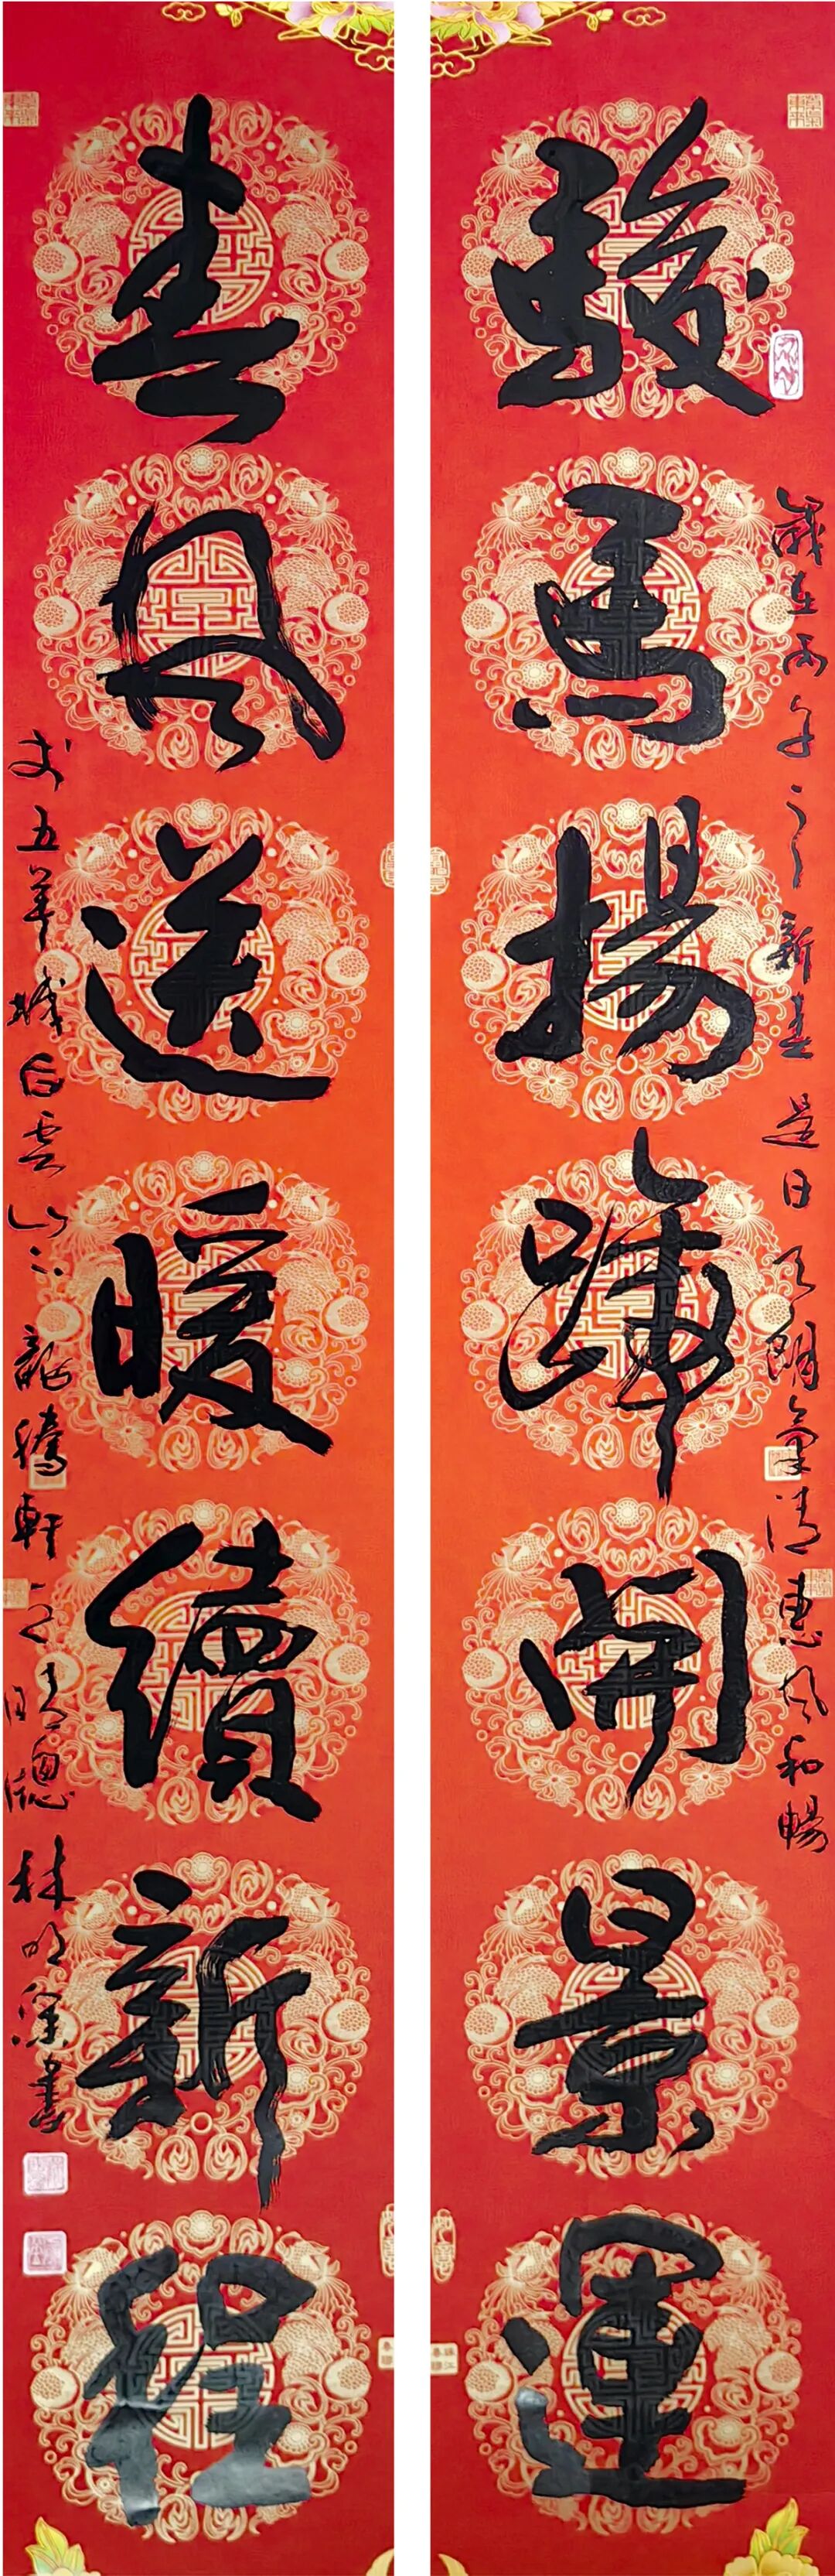 駿馬揚蹄開景運
歲在丙午之新春是日天朗氣清惠風和暢
春風送暖續新程
於五羊城白雲山下龍騰軒之晴窗林明深書